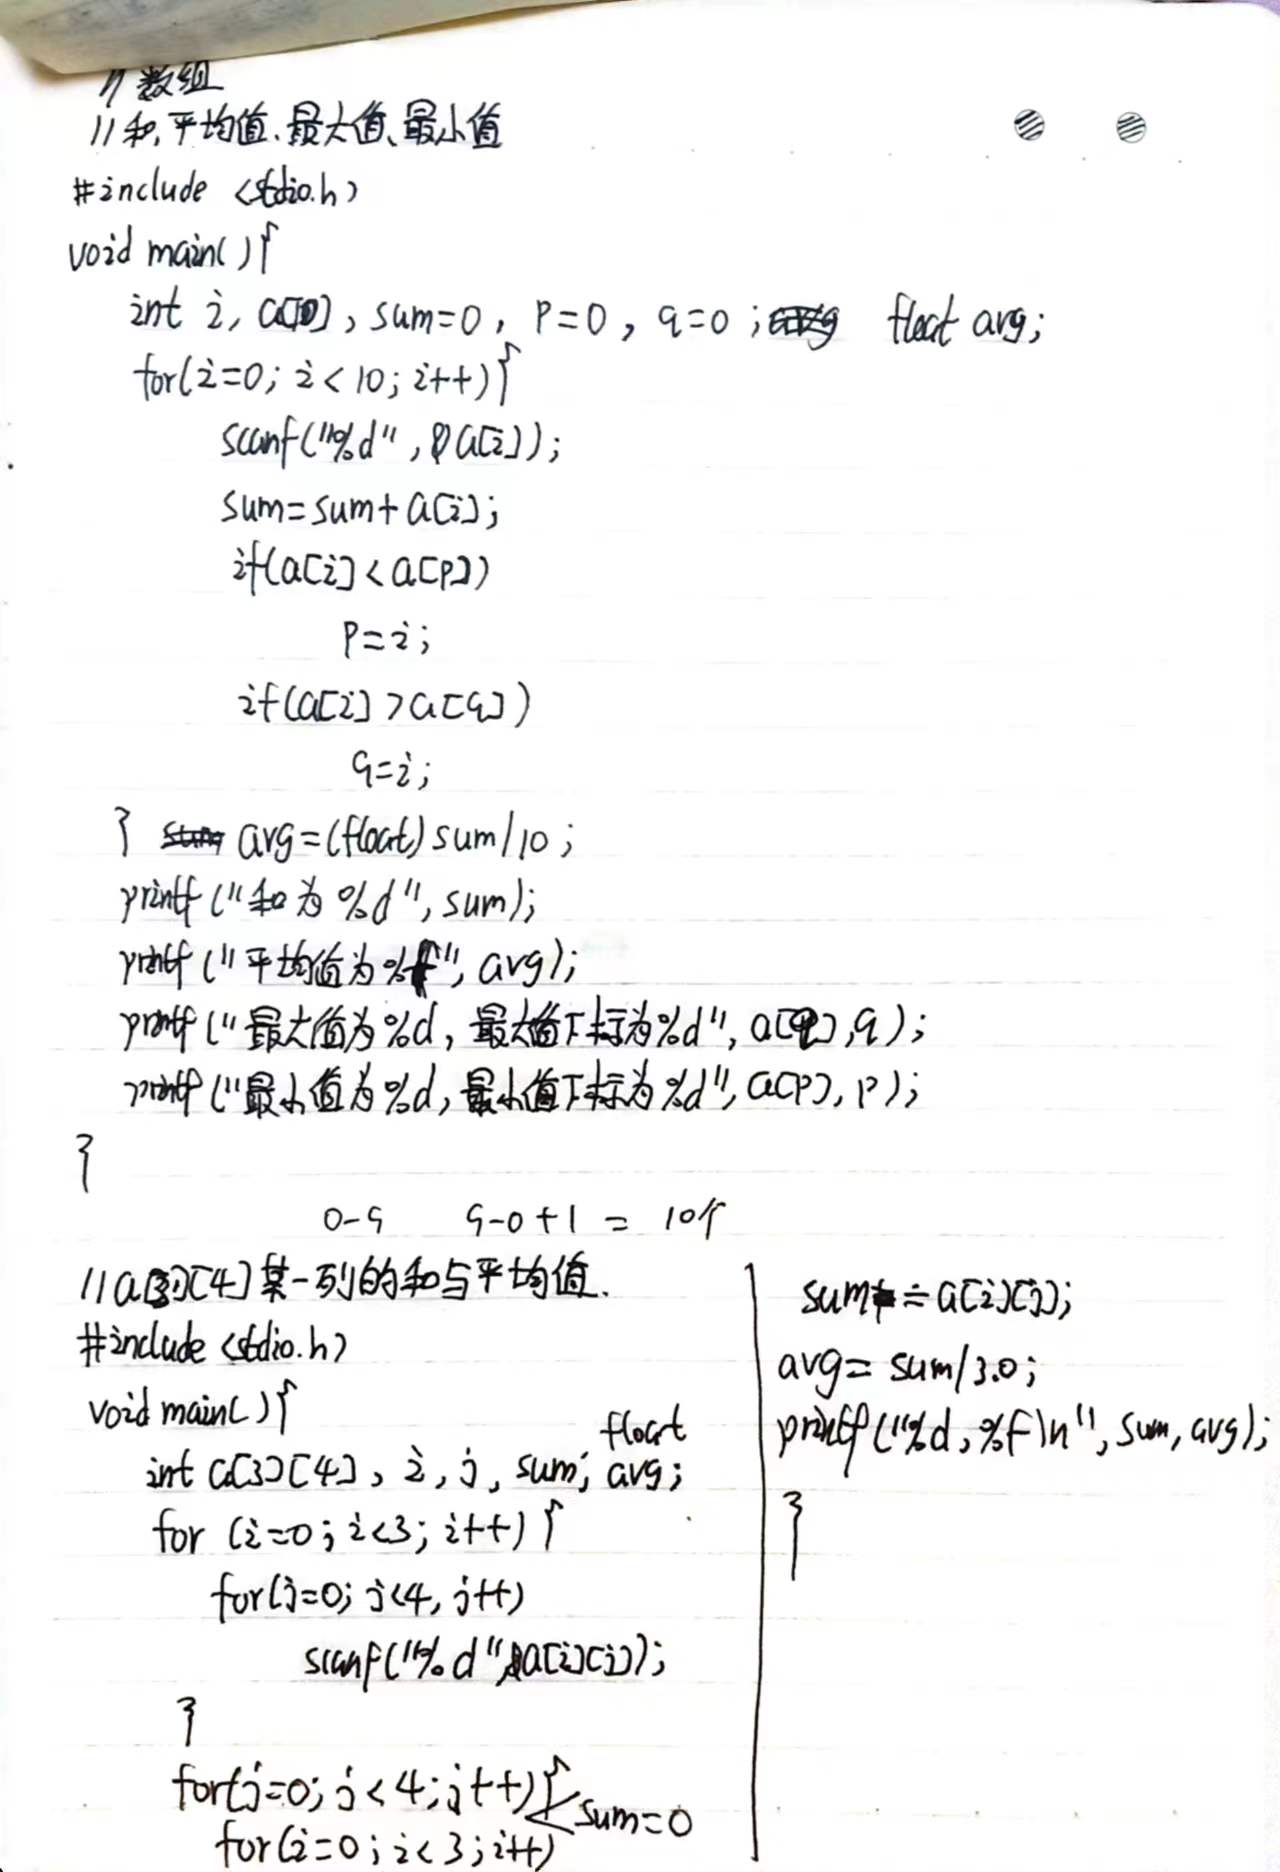 // 数组
// 和、平均值、最大值、最小值
#include <stdio.h>
void main(){
int i, a[10], sum=0, p=0, q=0; float avg;
for(i=0; i<10; i++){
scanf("%d", &a[i]);
sum=sum+a[i];
if(a[i]<a[p])
p=i;
if(a[i]>a[q])
q=i;
} avg=(float)sum/10;
printf("和为%d", sum);
printf("平均值为%f", avg);
printf("最大值为%d, 最大值下标为%d", a[q], q);
printf("最小值为%d, 最小值下标为%d", a[p], p);
}
0-9 9-0+1 = 10个
// a[3][4]某一列的和与平均值.
#include <stdio.h>
void main(){
int a[3][4], i, j, sum; float avg;
for (i=0; i<3; i++){
for(j=0; j<4, j++)
scanf("%d", &a[i][j]);
}
for(j=0; j<4; j++){ sum=0
for(i=0; i<3; i++)
sum+=a[i][j];
avg=sum/3.0;
printf("%d, %f\n", sum, avg);
}